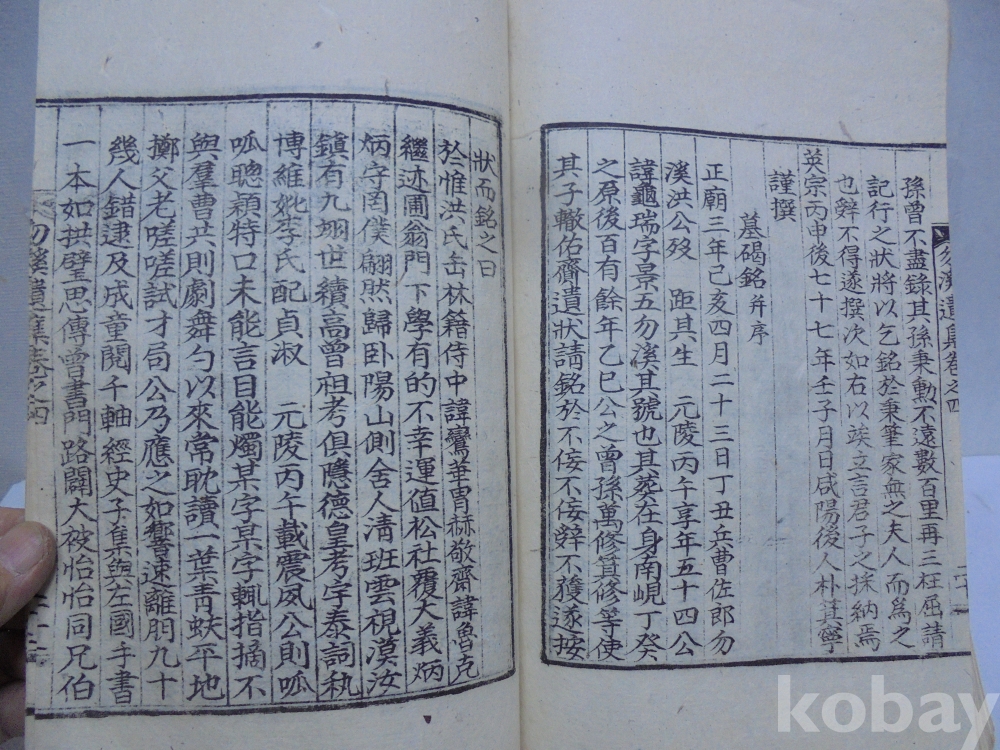 勿溪遺集卷之四
孫曾不盡錄其孫秉勳不遠數百里再三枉屈請
記行之狀將以乞銘於秉筆家無之夫人而爲之
也辤不得遂撰次如右以竢立言君子之採納焉
英宗丙申後七十七年壬子月日咸陽後人朴箕寧
謹撰
墓碣銘 幷序
正廟三年己亥四月二十三日丁丑兵曹佐郎勿
溪洪公歿 距其生 元陵丙午享年五十四公
諱龜瑞字景五勿溪其號也其葬在身南峴丁癸
之原後百有餘年乙巳公之曾孫萬修箕修等使
其子轍佑齎遺狀請銘於不佞不佞辤不獲遂按
狀而銘之曰
於惟洪氏缶林籍侍中諱鸞華胄赫敬齋諱魯克
繼迹圃翁門下學有的不幸運値松社覆大義炳
炳守罔僕翩然歸卧陽山側舍人淸班雲視漠汝
鎭有九翊世續高曾祖考俱應德皇考宇泰詞執
博維妣李氏配貞淑 元陵丙午載震夙公則呱
呱聰穎特口未能言目能燭某字某字輒指摘不
與羣曹共則劇舞勺以來常耽讀一葉靑蚨平地
擲父老嗟嗟試才局公乃應之如響速離胆九十
幾人錯逮及成童閱千軸經史子集與左國手書
一本如拱璧思傳曾書門路闢大被怡怡同兄伯
勿溪遺集卷之四
kobay